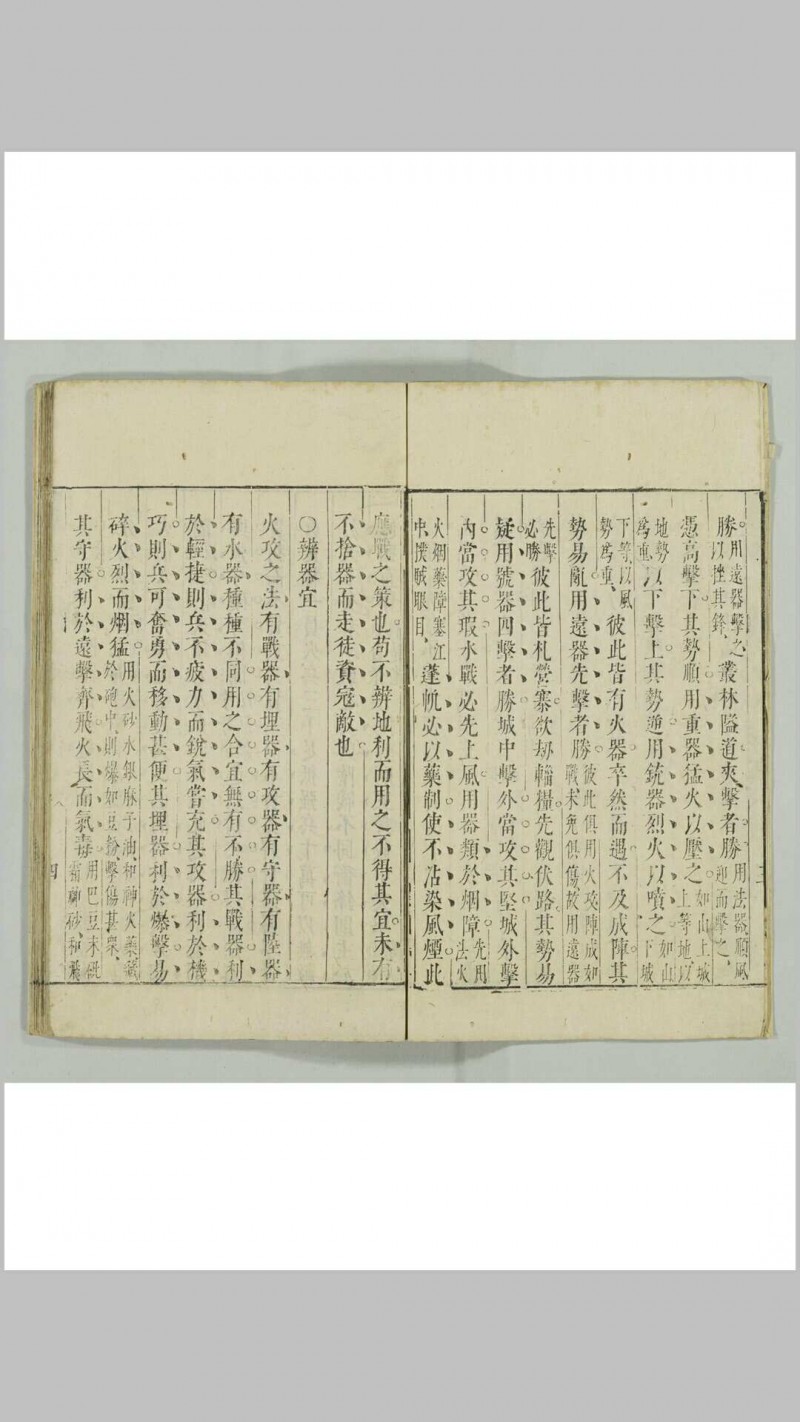 勝用遠器擊之以挫其鋒叢林隘道夾擊者勝用法器順風迎而擊之
憑高擊下其勢順用重器猛火以壓之如山上城上等地以
地勢爲重以下擊上其勢逆用銃器烈火以噴之如山下城
下等以風勢爲重彼此皆有火器卒然而遇不及成陣其
勢易亂用遠器先擊者勝彼此俱用火攻陣成如戰未免俱傷故用遠器
先擊必勝彼此皆札營寨欲刼輜糧先觀伏路其勢易
疑用號器四擊者勝城中擊外當攻其堅城外擊
內當攻其瑕水戰必先上風用器類於烟障先用法火
火烟藥障塞江中撲賊眼目蓬帆必以藥制使不沾染風煙此
應戰之策也苟不辨地利而用之不得其宜未有
不拾器而走徒資寇敵也
○辨器宜
火攻之法有戰器有埋器有攻器有守器有陸器
有水器種種不同用之合宜無有不勝其戰器利
於輕捷則兵不疲力而銳氣嘗充其攻器利於機
巧則兵可奮勇而移動甚便其埋器利於爆擊易
碎火烈而烟猛用火砂水銀麻子油和神火藥藏於砲中則爆如豆粉擊傷甚衆
其守器利於遠擊齊飛火長而氣毒用巴豆末砒霜硇砂和藥
三
四